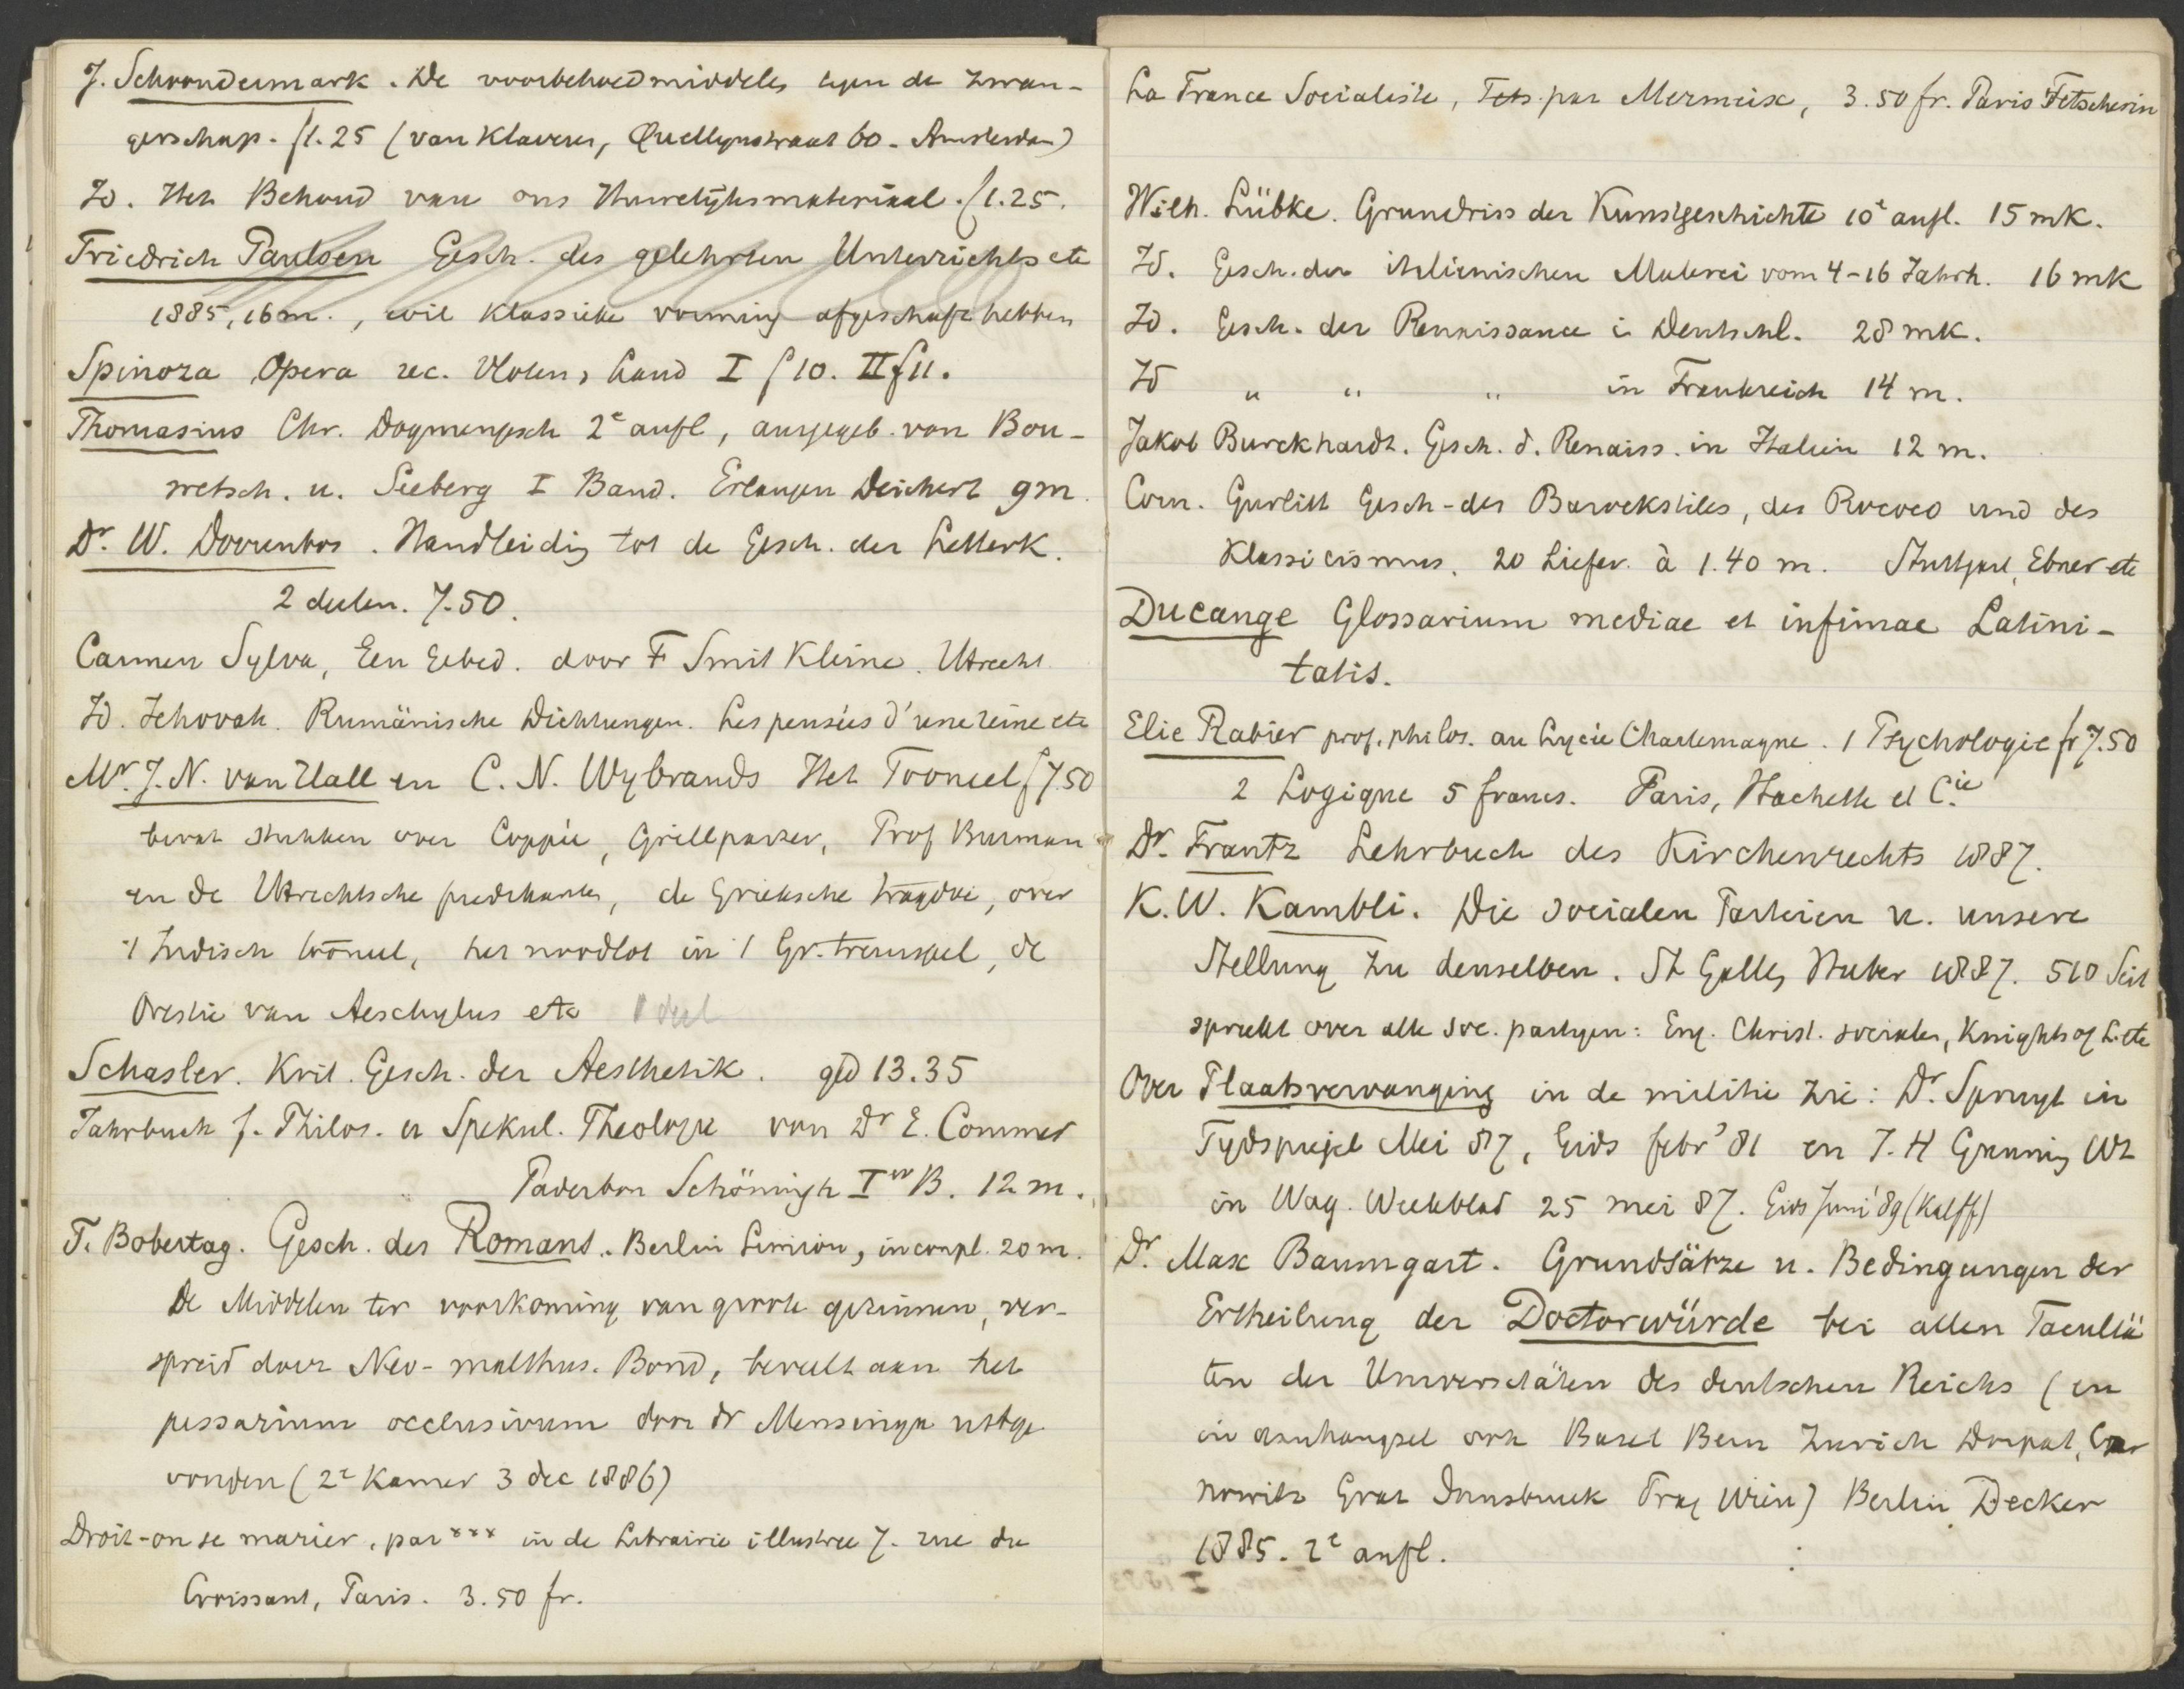 J. Schoondermark. De voorbehoedmiddelen tegen de zwan-
gerschap. f 1.25 (van Klaveren, Quellynstraat 60. Amsterdam)
Id. Het Behoud van ons Huwelijksmateriaal. f 1.25.
Friedrich Paulsen Gesch. des gelehrten Unterrichts etc
1885, 16 m., wil klassieke vorming afgeschaft hebben
Spinoza Opera rec. Vloten, Land I f 10. II f 11.
Thomasius Chr. Dogmengesch 2e aufl, ausgegeb. von Bon-
wetsch. u. Seeberg I Band. Erlangen Deichert 9 m.
Dr. W. Doorenbos. Handleiding tot de Gesch. der Letterk.
2 deelen. 7.50.
Carmen Sylva, Een Gebed. door F Smit Kleine. Utrecht
Id. Jehovah. Rumänische Dichtungen. Les pensées d'une reine etc
Mr. J. N. van Hall en C. N. Wybrands Het Tooneel f 7.50
bevat stukken over Coppée, Grillparzer, Prof Burman
en de Utrechtsche predikanten, de Grieksche tragedie, over
't Indisch tooneel, het noodlot in 't Gr. treurspel, de
Orestie van Aeschylus etc 1 deel
Schasler. Krit. Gesch. der Aesthetik. geb 13.35
Jahrbuch f. Philos. u Spekul. Theologie von Dr E. Commer
Paderborn Schöningh Ier B. 12 m.
F. Bobertag. Gesch. des Romans. Berlin Simion, incompl. 20 m.
De Middelen ter voorkoming van groote gezinnen, ver-
spreid door Neo-malthus. Bond, beveelt aan het
pessarium occlusivum door dr Mensinga uitge
vonden (2e Kamer 3 dec 1886)
Droit-on se marier, par *** in de Librairie illustree 7. rue du
Croissant, Paris. 3.50 fr.
La France Socialiste, par Mermeix, 3.50 fr. Paris Fetscherin
Wilh. Lübke. Grundriss der Kunstgeschichte 10e aufl. 15 mk.
Id. Gesch. der italienischen Malerei vom 4-16 Jahrh. 16 mk
Id. Gesch. der Renaissance i Deutschl. 28 mk.
Id " " " in Frankreich 14 m.
Jakob Burckhardt. Gesch. d. Renaiss. in Italien 12 m.
Corn. Gurlitt Gesch-des Barockstiles, des Rococo und des
Klassicismus. 20 Liefer. à 1.40 m. Stuttgart, Ebner etc
Ducange Glossarium mediae et infimae Latini-
tatis.
Elie Rabier prof. philos. au Lycée Charlemagne. 1 Psychologie fr 7.50
2 Logique 5 francs. Paris, Hachette et Cie.
Dr. Frantz Lehrbuch des Kirchenrechts 1887.
K. W. Kambli. Die socialen Parteien u. unsere
Stellung zu denselben. St Gallen Huber 1887. 510 Seit
spreekt over alle soc. partyen: Eng. Christ. socialen, Knights of L. etc
Over Plaatsvervanging in de militie zie: Dr. Spruyt in
Tydspiegel Mei 87, Gids febr '81 en J. H Gunning Wz
in Wag. Weekblad 25 mei 87. Gids Juni '89 (Kalff)
Dr. Max Baumgart. Grundsätze u. Bedingungen der
Ertheilung der Doctorwürde bei allen Facultä
ten der Universitäten des deutschen Reichs (en
in aanhangsel ook Basel Bern Zurich Dorpat, Czer
nowitz Graz Innsbruck Prag Wien) Berlin Decker
1885. 2e aufl.